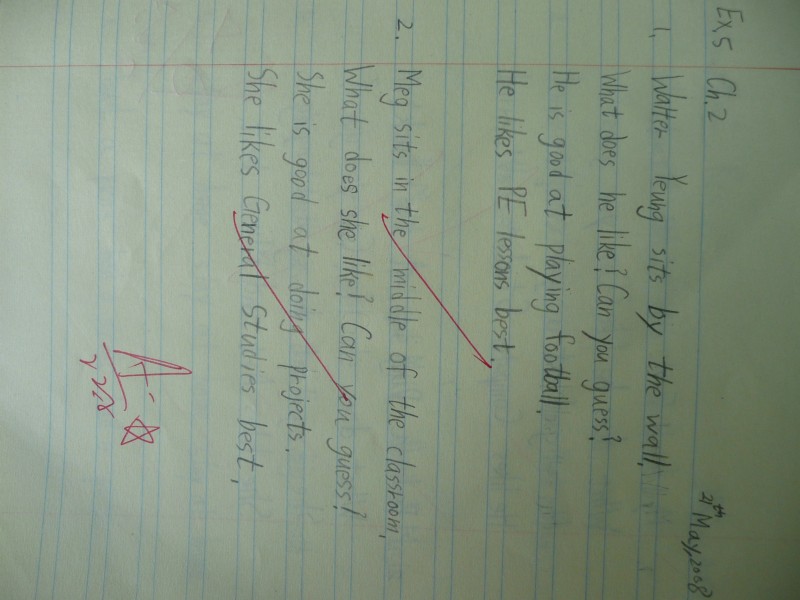 Ex5 Ch.2
21th May, 2008
1. Walter Yeung sits by the wall.
What does he like? Can you guess?
He is good at playing football.
He likes PE lessons best.
2. Meg sits in the middle of the classroom.
What does she like? Can you guess?
She is good at doing projects.
She likes General Studies best.
A-